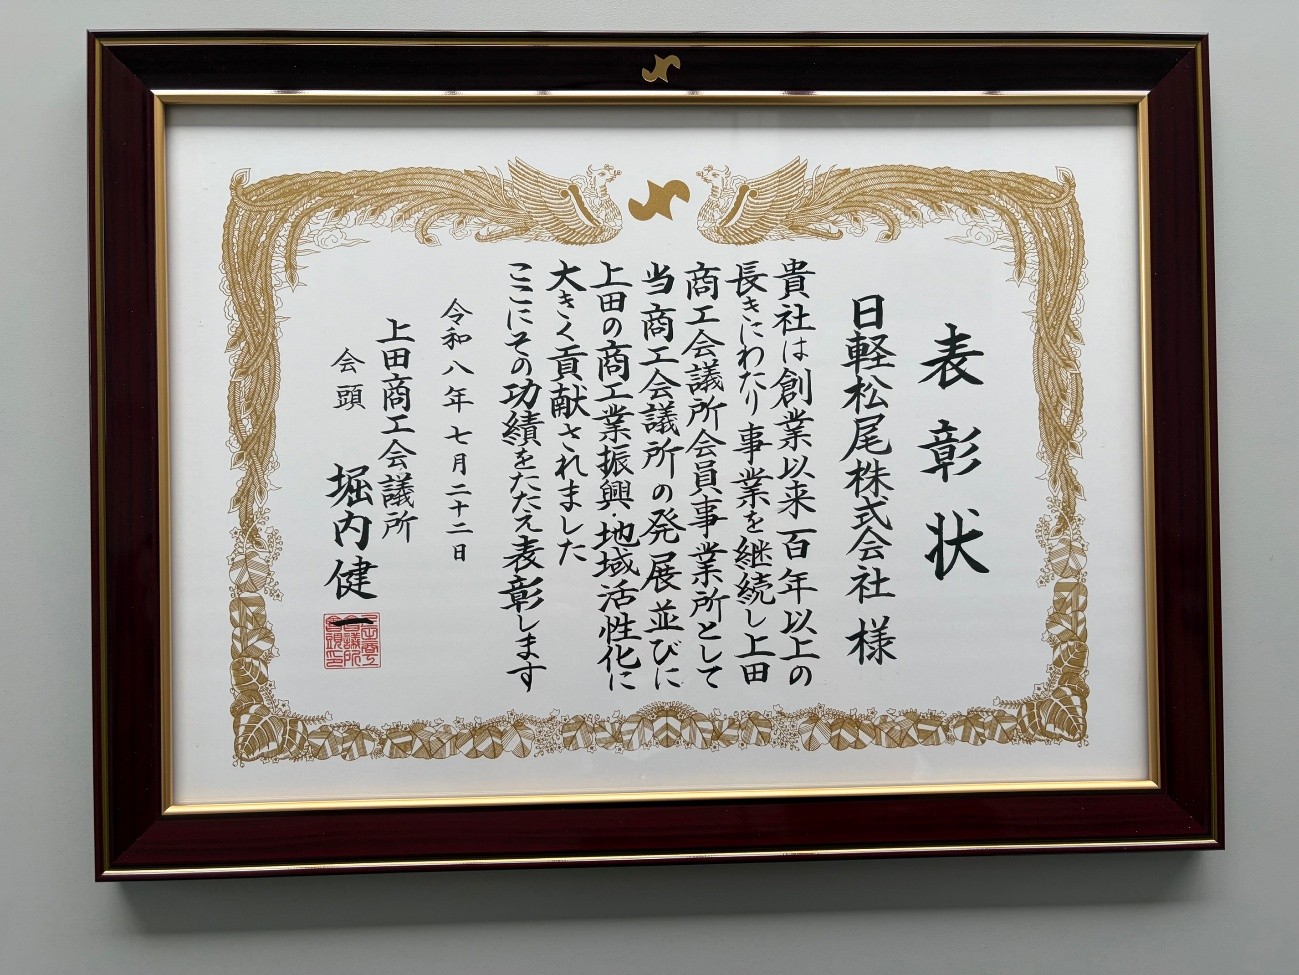 表彰状
日軽松尾株式会社 様
貴社は創業以来百年以上の
長きにわたり事業を継続し上田
商工会議所会員事業所として
当商工会議所の発展並びに
上田の商工業振興地域活性化に
大きく貢献されました
ここにその功績をたたえ表彰します
令和八年七月二十二日
上田商工会議所
会頭 堀内健一